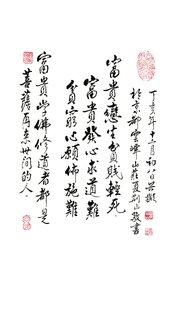 丁亥年十二月初八日峇撒
於京都雲峰山莊夏荊山敬書
富貴戀生貧賤輕死
富貴發心求道難
貧窮心願佈施難
富貴學佛修道者都是
菩薩再來世間的人